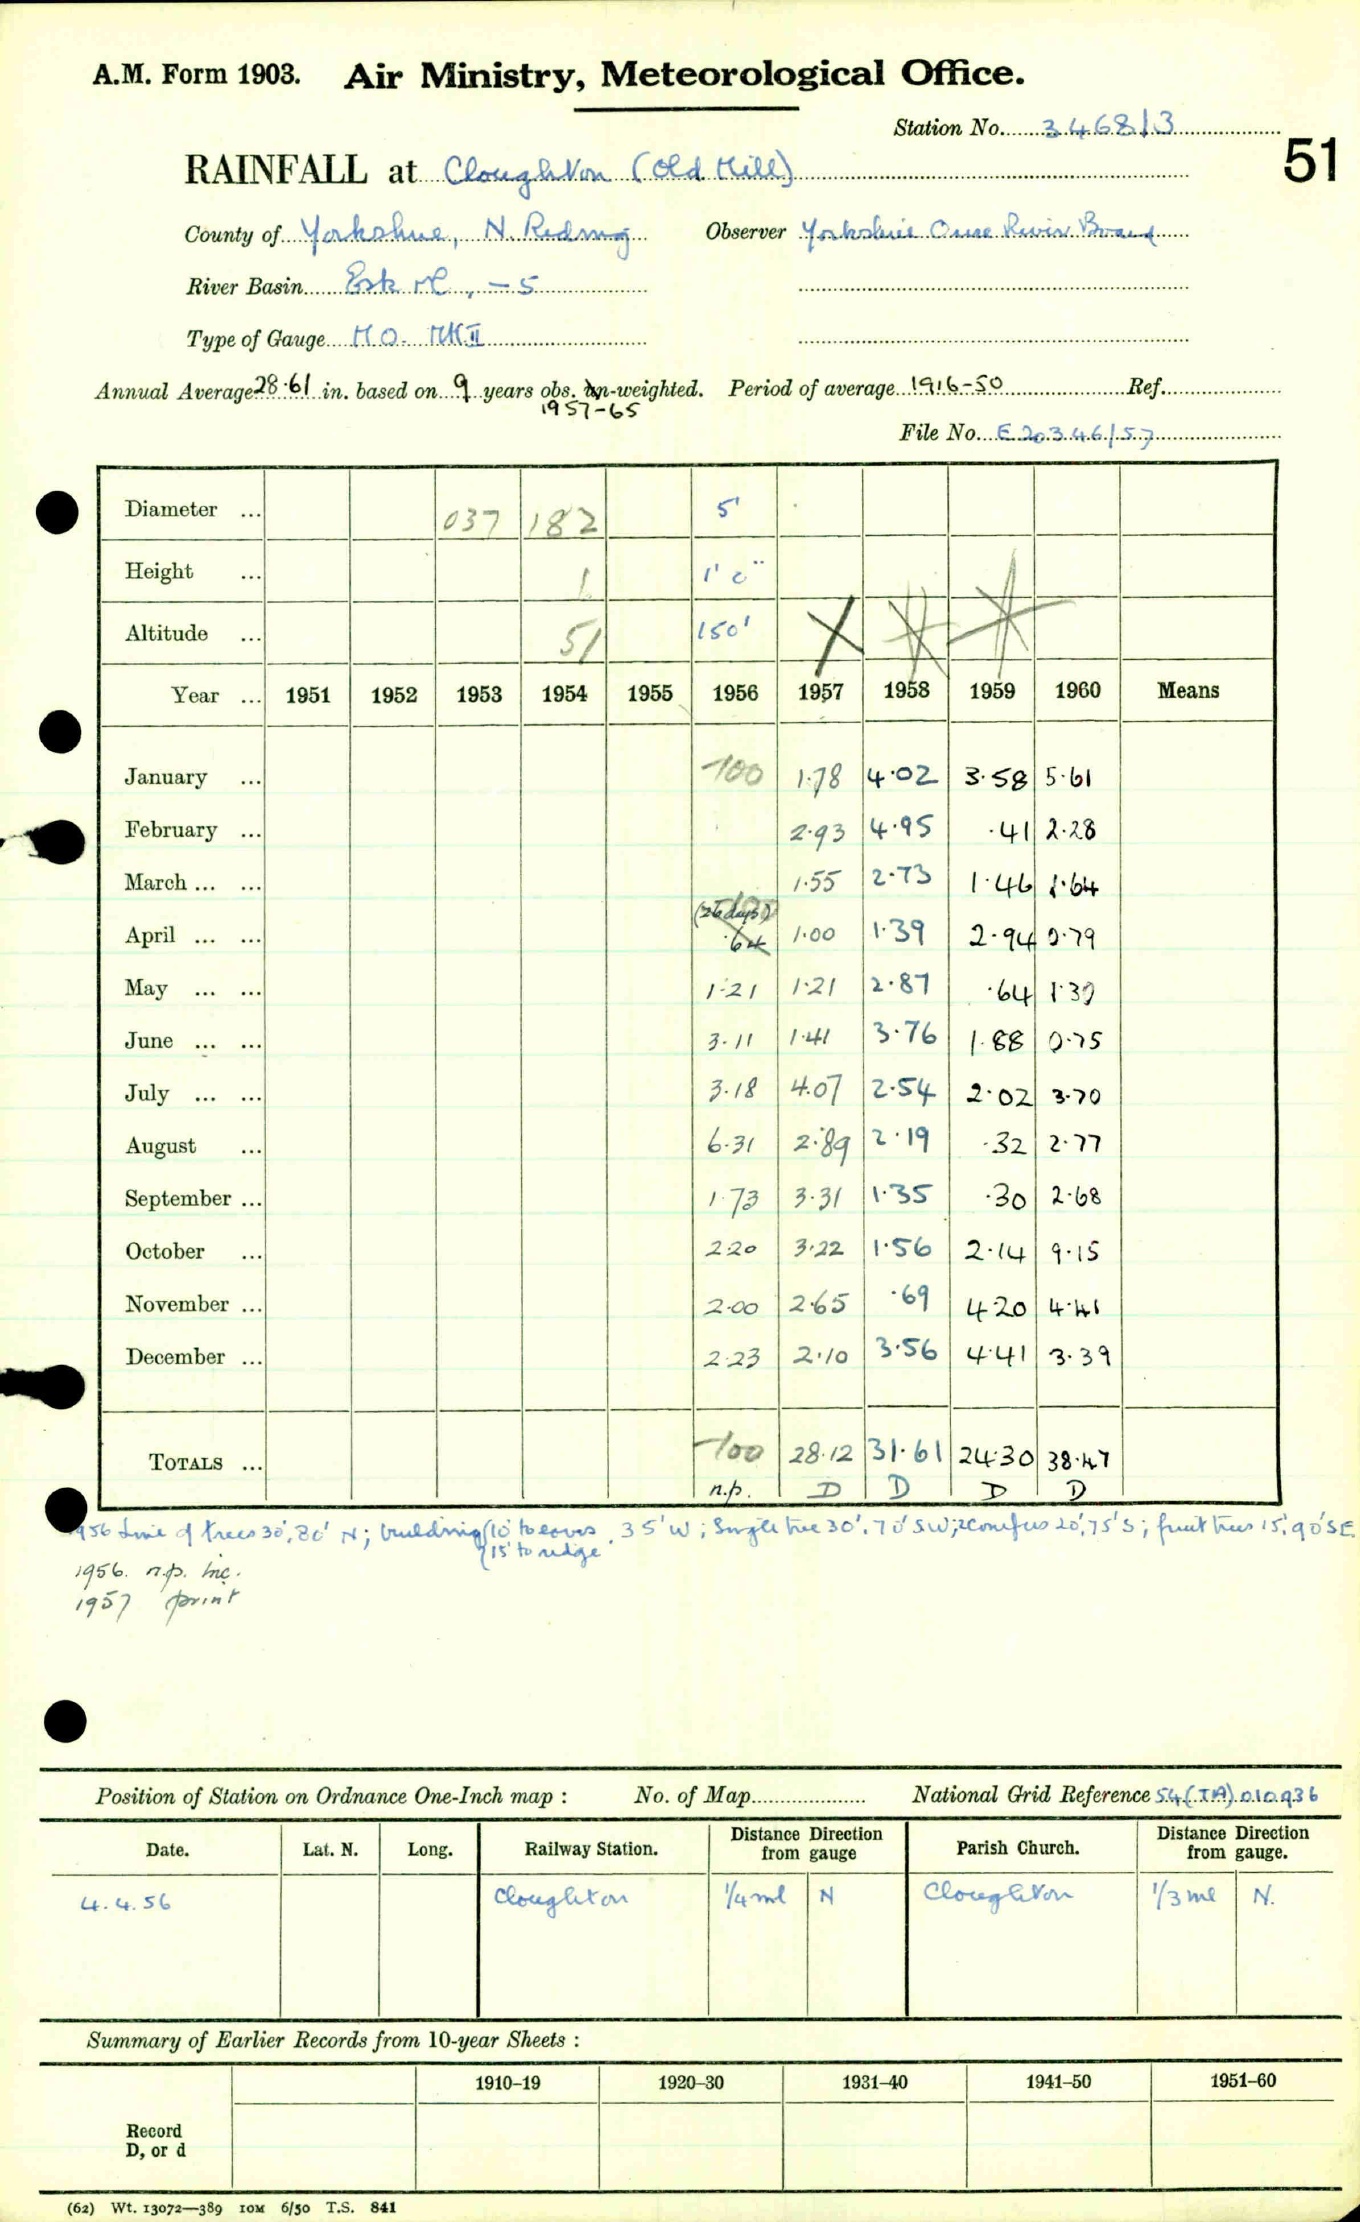 A.M. Form 1903. Air Ministry, Meteorological Office.
Station No. 3468/3
51
RAINFALL at Cloughton (Old Mill)
County of Yorkshire, N. Riding Observer Yorkshire Ouse River Board
River Basin Esk &c, -5
Type of Gauge M O. MK II
Annual Average 28.61 in. based on 9 years obs. un-weighted. Period of average 1916-50 Ref.
1957-65
File No. E 20346/57
Diameter ... 037 182 5"
Height ... 1 1' 0"
Altitude ... 51 150'
Year ... 1951 1952 1953 1954 1955 1956 1957 1958 1959 1960 Means
January ... -100 1.78 4.02 3.58 5.61
February ... 2.93 4.95 .41 2.28
March ... ... 1.55 2.73 1.46 1.64
(26 days)
April ... ... .64 1.00 1.39 2.94 0.79
May ... ... 1.21 1.21 2.87 .64 1.30
June ... ... 3.11 1.41 3.76 1.88 0.75
July ... ... 3.18 4.07 2.54 2.02 3.70
August ... 6.31 2.89 2.19 .32 2.77
September ... 1.73 3.31 1.35 .30 2.68
October ... 2.20 3.22 1.56 2.14 9.15
November ... 2.00 2.65 .69 4.20 4.41
December ... 2.23 2.10 3.56 4.41 3.39
TOTALS ... -100 28.12 31.61 24.30 38.47
n.p. D D D D
1956 Line of trees 30', 80' N; building (10' to eaves, 35' W; Single tree 30', 70' SW; 2 conifers 20', 75' S; fruit trees 15', 90' SE
(15' to ridge
1956. n.p. Inc.
1957 print
Position of Station on Ordnance One-Inch map : No. of Map National Grid Reference 54 (TA) 010936
Date. Lat. N. Long. Railway Station. Distance from Direction gauge Parish Church. Distance from Direction gauge.
4.4.56 Cloughton 1/4 ml N Cloughton 1/3 ml N.
Summary of Earlier Records from 10-year Sheets :
1910–19 1920–30 1931–40 1941–50 1951–60
Record
D, or d
(62) Wt. 13072—389 10M 6/50 T.S. 841